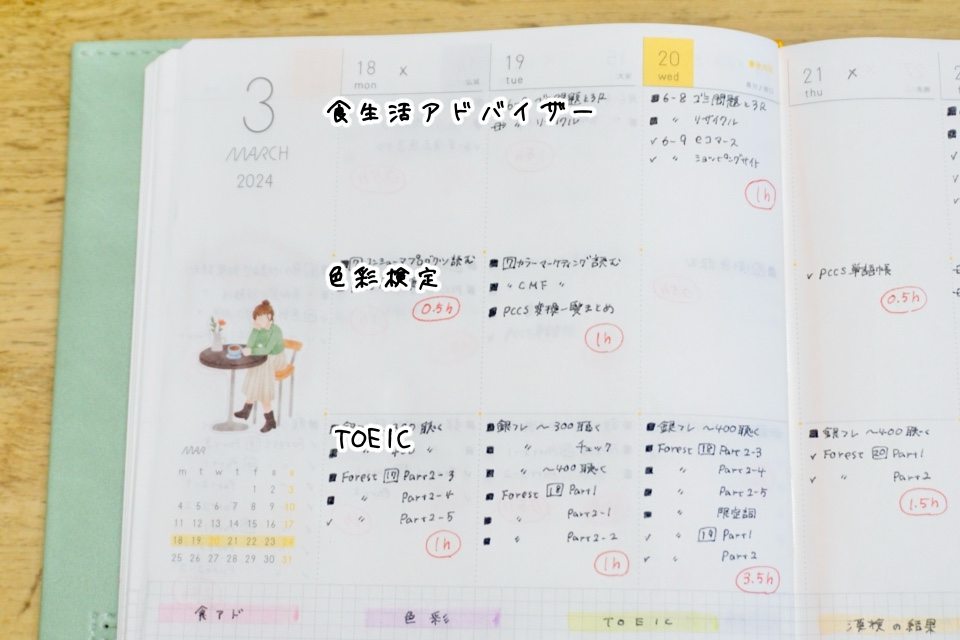 3
MARCH
2024
18 x
mon
19
tue
20
wed
21 x
thu
食生活アドバイザー
〃 リサイクル
■ 6-8 ゴミ問題と3R
■ 〃 リサイクル
✓ 6-9 eコマース
✓ 〃 ショッピングサイト
1h
色彩検定
0.5h
■ 7 カラーマーケティング読む
■ 〃 CMF 〃
■ PCCS 変換一覧まとめ
1h
✓ PCCS 単語帳
0.5h
TOEIC
■ Forest 17 Part2-3
■ 〃 Part2-4
✓ 〃 Part2-5
1h
■ 銀フレ ～300聴く
■ 〃 チェック
■ 〃 ～400聴く
■ Forest 18 Part1
■ 〃 Part2-1
■ 〃 Part2-2
1h
■ 銀フレ ～400聴く
■ Forest 18 Part2-3
■ 〃 Part2-4
■ 〃 Part2-5
■ 〃 限定詞
✓ 〃 19 Part1
✓ 〃 Part2
3.5h
■ 銀フレ ～400聴く
✓ Forest 20 Part1
✓ 〃 Part2
1.5h
MAR
m t w t f s s
1 2 3
4 5 6 7 8 9 10
11 12 13 14 15 16 17
18 19 20 21 22 23 24
25 26 27 28 29 30 31
食アド
色彩
TOEIC
漢検の結果